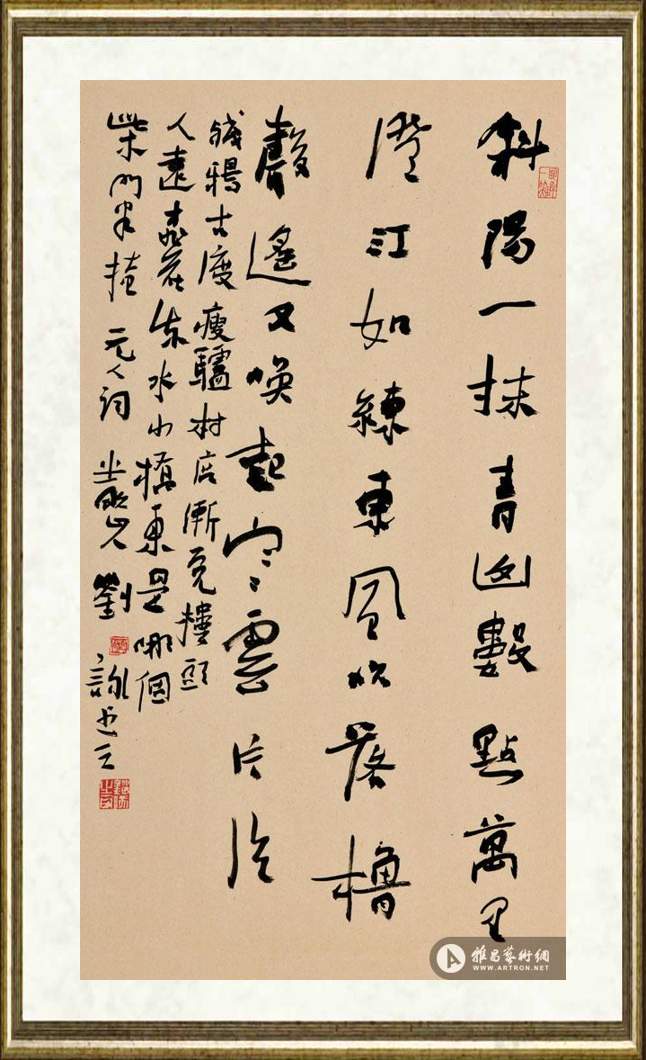 斜陽一抹青山數點萬里
澄江如練東風吹落櫓
聲遙又喚起寒雲片片
殘鴉古渡瘦驢村店漸樓頭
人遠桃花流水小橋東是哪個
柴門半掩 元人詞 劉詠
雅昌藝術網
WWW.ARTRON.NET